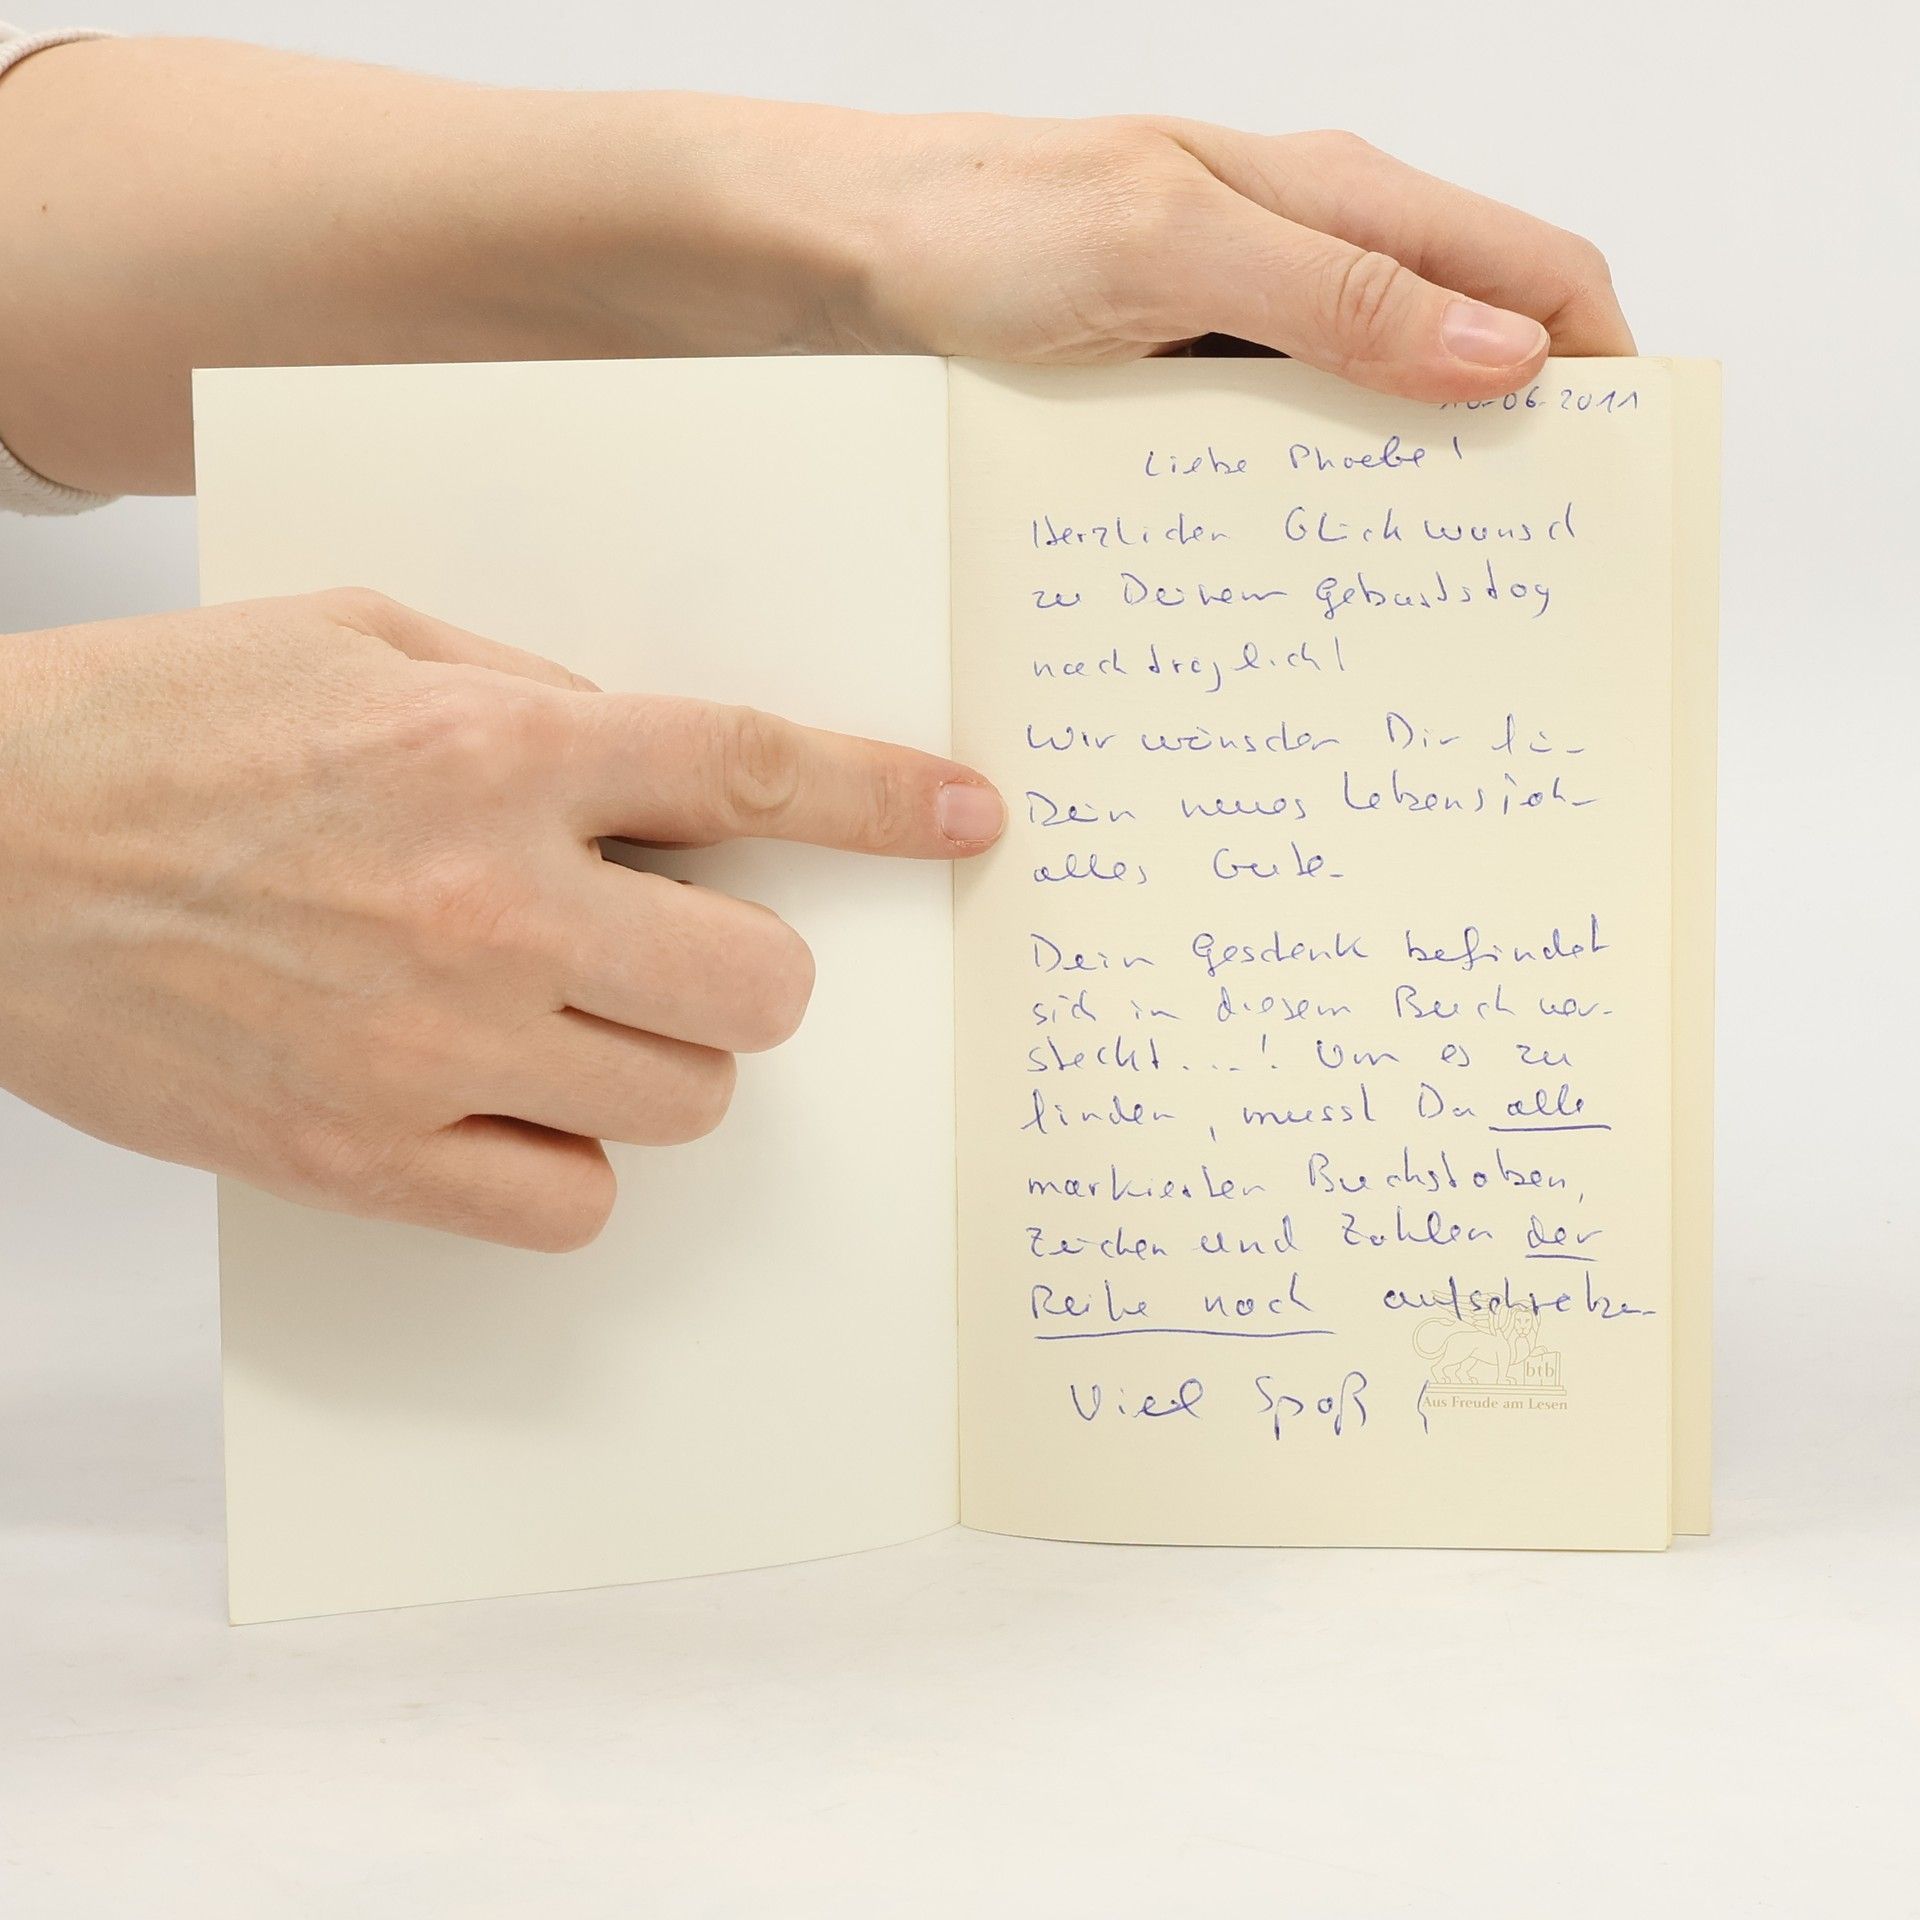 06.2011
Liebe Phoebe!
Herzlichen Glückwunsch
zu Deinem Geburtstag
nachträglich!
Wir wünschen Dir für
Dein neues Lebensjahr
alles Gute.
Dein Geschenk befindet
sich in diesem Buch ver-
steckt...! Um es zu
finden, musst Du alle
markierten Buchstaben,
Zeichen und Zahlen der
Reihe nach aufschreiben.
Viel Spaß!
btb
Aus Freude am Lesen